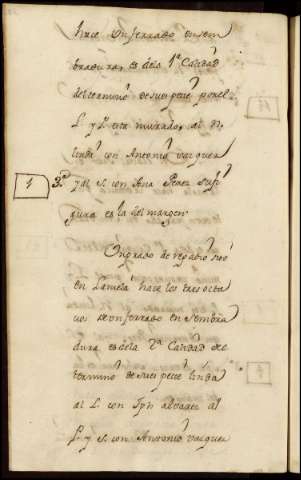 hace un ferrado en sem
bradura, es dela 1ª Calidad
del termino de su especie por el
L. y P. esta murado, al N.
linda con Antonio Vazquez
1 3ª y al S. con Ana Perez su fi
gura es la del margen
Un prado de regadio sito
en Lamela hace los tres octa
vos de un ferrado en sembra
dura es de la 2ª Calidad de
termino de su especie linda
al L. con Jph alvarez al
P. y S. con Antonio vazquez